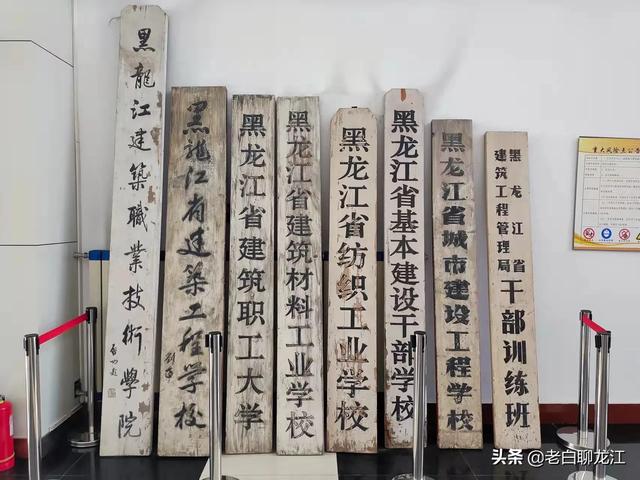 黑龍江建築職業技術學院
启功題
黑龙江省建筑工程学校
黑龙江省建筑职工大学
黑龙江省建筑材料工业学校
黑龙江省纺织工业学校
黑龙江省基本建设干部学校
黑龙江省城市建设工程学校
黑龙江省
建筑工程管理局
干部训练班
重大风险点公告
头条 @老白聊龙江